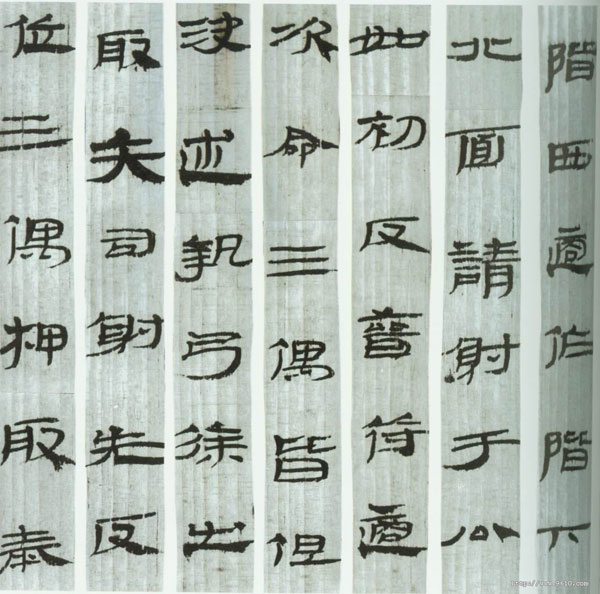 階西適作階下
北面請射于公
如初反晉適
次命三偶皆但
決述執弓徐出
取矢司射先反
位三偶取